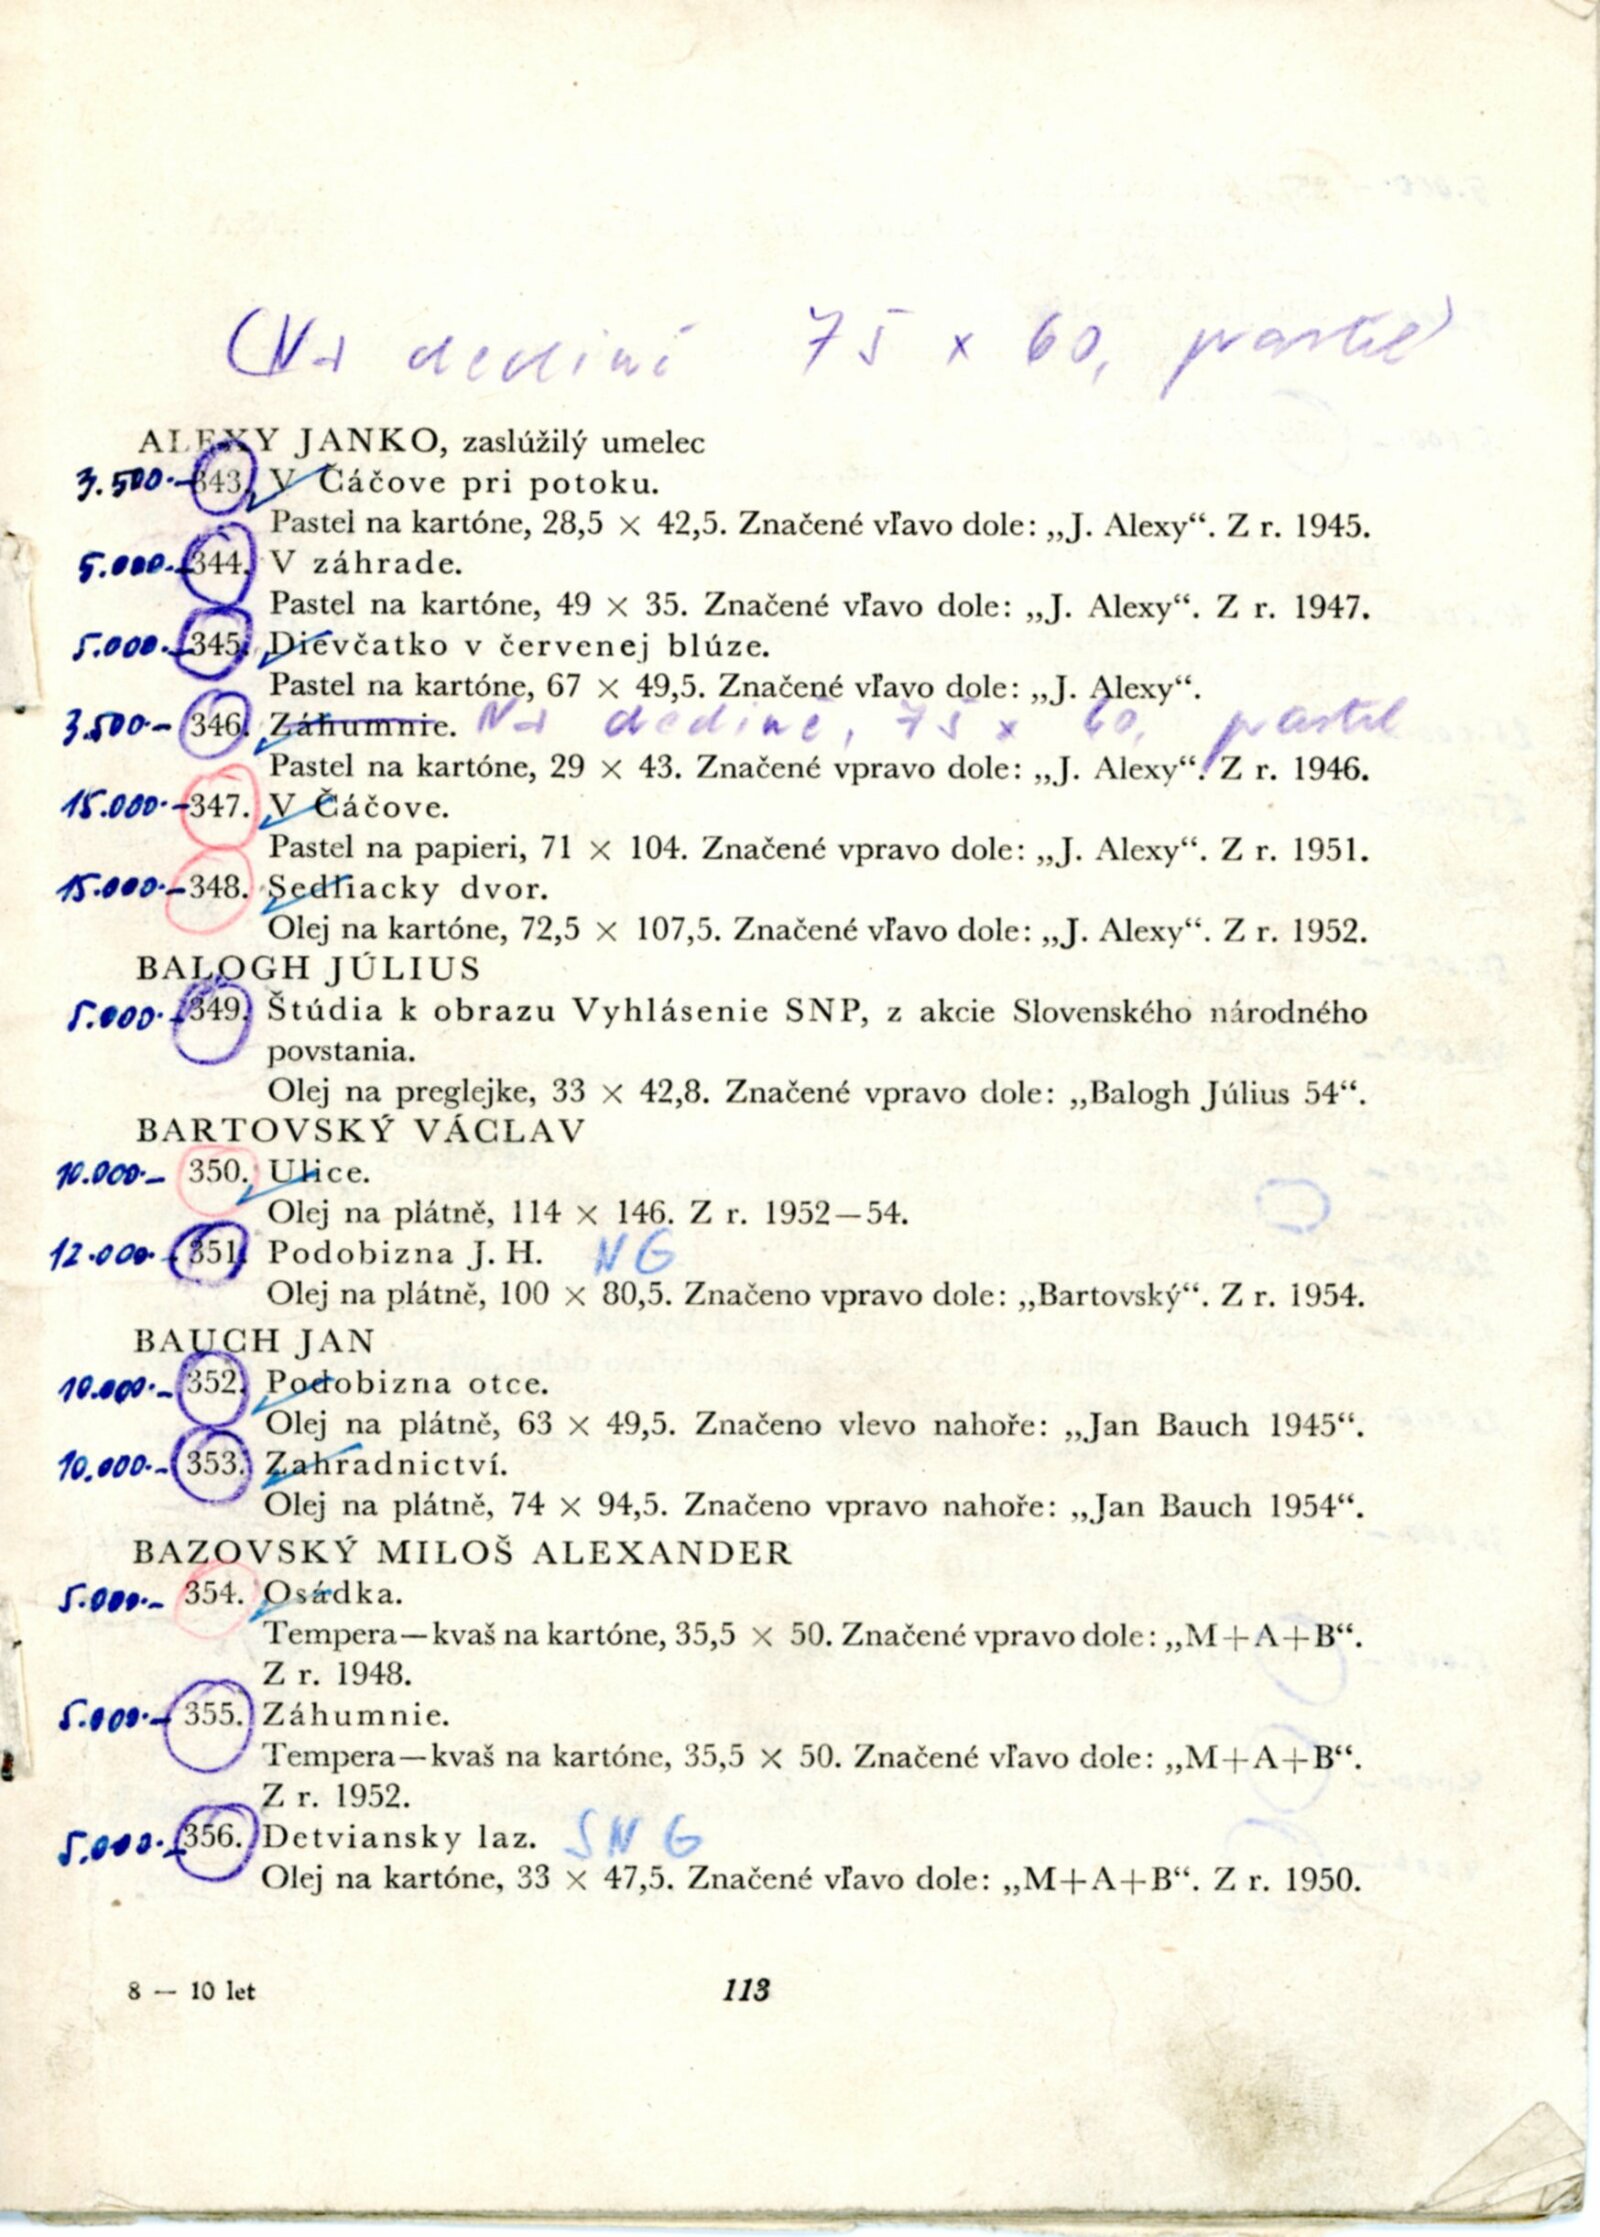 (Na dedině 75 x 60, pastel)
ALEXY JANKO, zaslúžilý umelec
3.500.- 343. V Čáčove pri potoku.
Pastel na kartóne, 28,5 × 42,5. Značené vľavo dole: „J. Alexy“. Z r. 1945.
5.000.- 344. V záhrade.
Pastel na kartóne, 49 × 35. Značené vľavo dole: „J. Alexy“. Z r. 1947.
5.000.- 345. Dievčatko v červenej blúze.
Pastel na kartóne, 67 × 49,5. Značené vľavo dole: „J. Alexy“.
3.500.- 346. Záhumnie. Na dedině, 75 x 60, pastel
Pastel na kartóne, 29 × 43. Značené vpravo dole: „J. Alexy“. Z r. 1946.
15.000.- 347. V Čáčove.
Pastel na papieri, 71 × 104. Značené vpravo dole: „J. Alexy“. Z r. 1951.
15.000.- 348. Sedliacky dvor.
Olej na kartóne, 72,5 × 107,5. Značené vľavo dole: „J. Alexy“. Z r. 1952.
BALOGH JÚLIUS
5.000.- 349. Štúdia k obrazu Vyhlásenie SNP, z akcie Slovenského národného
povstania.
Olej na preglejke, 33 × 42,8. Značené vpravo dole: „Balogh Július 54“.
BARTOVSKÝ VÁCLAV
10.000.- 350. Ulice.
Olej na plátně, 114 × 146. Z r. 1952—54.
12.000.- 351. Podobizna J. H. NG
Olej na plátně, 100 × 80,5. Značeno vpravo dole: „Bartovský“. Z r. 1954.
BAUCH JAN
10.000.- 352. Podobizna otce.
Olej na plátně, 63 × 49,5. Značeno vlevo nahoře: „Jan Bauch 1945“.
10.000.- 353. Zahradnictví.
Olej na plátně, 74 × 94,5. Značeno vpravo nahoře: „Jan Bauch 1954“.
BAZOVSKÝ MILOŠ ALEXANDER
5.000.- 354. Osádka.
Tempera—kvaš na kartóne, 35,5 × 50. Značené vpravo dole: „M+A+B“.
Z r. 1948.
5.000.- 355. Záhumnie.
Tempera—kvaš na kartóne, 35,5 × 50. Značené vľavo dole: „M+A+B“.
Z r. 1952.
5.000.- 356. Detviansky laz. SNG
Olej na kartóne, 33 × 47,5. Značené vľavo dole: „M+A+B“. Z r. 1950.
8 — 10 let
113